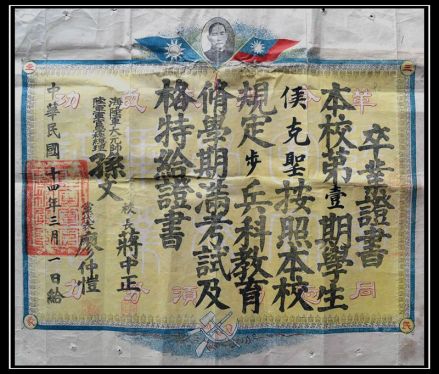 卒業證書
本校第壹期學生
侯克聖按照本校
規定步兵科教育
修學期滿考試及
格特給證書
海陸軍大元帥
陸軍軍官學校總理 孫文
校長 蔣中正
黨代表 廖仲愷
中華民國十四年三月一日給